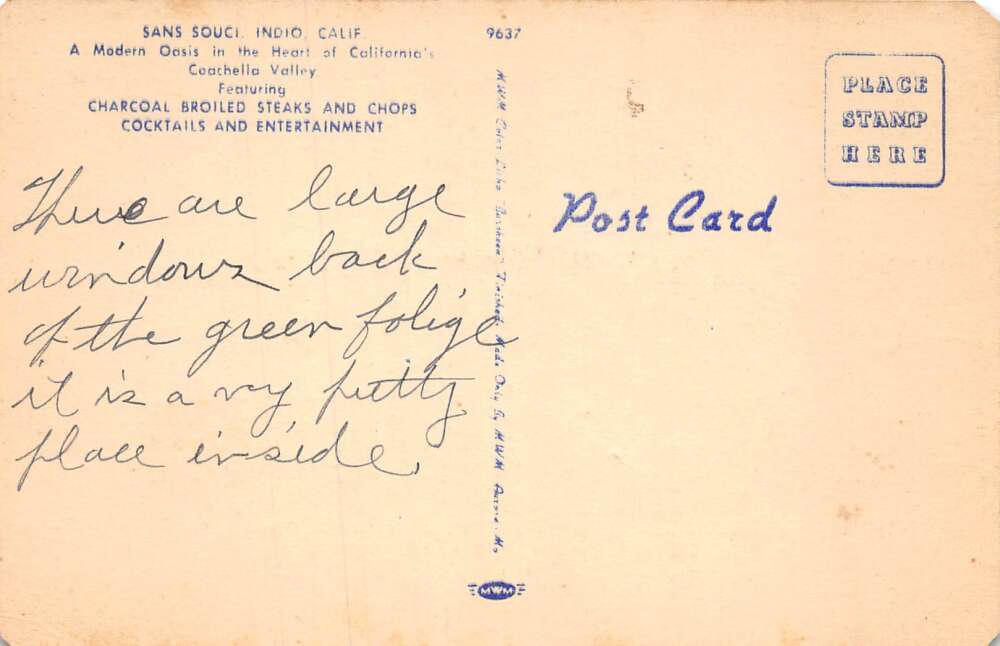 SANS SOUCI, INDIO, CALIF.
A Modern Oasis in the Heart of California's
Coachella Valley
Featuring
CHARCOAL BROILED STEAKS AND CHOPS
COCKTAILS AND ENTERTAINMENT
There are large
windows back
of the green folige
it is a very pretty
place inside.
9637
MWM Color Litho "Sunsheen" Finished. Made Only By MWM Aurora, Mo.
MWM
PLACE
STAMP
HERE
Post Card